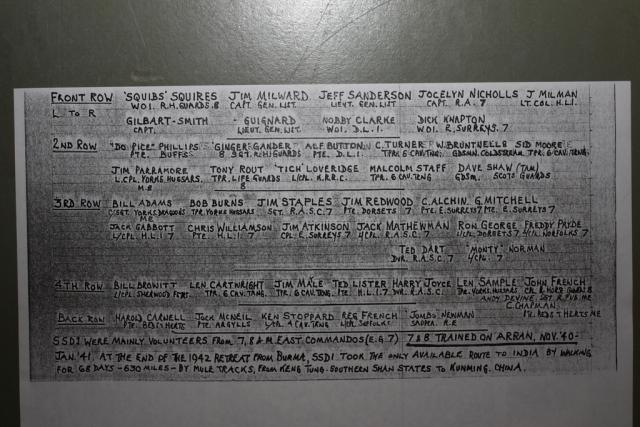 FRONT ROW 'SQUIBS' SQUIRES JIM MILWARD JEFF SANDERSON JOCELYN NICHOLLS J MILMAN
L TO R WO1. R.H. GUARDS. 8 CAPT. GEN. LIST. LIEUT. GEN. LIST. CAPT. R.A. 7 LT. COL. H.L.I.
GILBART-SMITH GUIGNARD NOBBY CLARKE DICK KNAPTON
CAPT. LIEUT. GEN. LIST. WO1. D.L.I. WO1. E. SURREYS. 7
2ND ROW "DO PICE" PHILLIPS 'GINGER' GANDER ALF BUTTON C. TURNER W. BRUNTWELLS SID MOORE
PTE. BUFFS 8 SGT. R.H. GUARDS PTE. D.L.I. TPR. 6 CAV. TNG. GDSMN. COLDSTREAM. TPR. 6 CAV. TRNG.
JIM PARRAMORE TONY ROUT 'TICH' LOVERIDGE MALCOLM STAFF DAVE SHAW (TAM)
L. CPL. YORKS. HUSSARS. TPR. LIFE GUARDS L/CPL. K.R.R.C. TPR. 6 CAV. TRNG GDSM. SCOTS GUARDS
M.E 8
3RD ROW BILL ADAMS BOB BURNS JIM STAPLES JIM REDWOOD C. ALCHIN. G. MITCHELL
C/SGT. YORKS. DRAGOONS TPR. YORKS HUSSARS SGT. R.A.S.C. 7 PTE. DORSETS 7 PTE. E. SURREYS 7 PTE. E. SURREYS 7
ME
JACK GABBOTT CHRIS WILLIAMSON JIM ATKINSON JACK MATHEWMAN RON GEORGE FREDDY PAYDE
L/CPL. H.L.I. 7 PTE. H.L.I. 7 CPL. E. SURREYS 7 L/CPL. R.A.S.C. 7 L/CPL. DORSETS 7 L/CPL. NORFOLKS 7
TED DART "MONTY" NORMAN
DVR. R.A.S.C. 7 L/CPL. 7
4TH ROW BILL BROWITT LEN CARTWRIGHT JIM MALE TED LISTER HARRY JOYCE LEN SAMPLE JOHN FRENCH
L/CPL SHERWOOD FSTRS. TPR. 6 CAV. TNG. TPR. 6 CAV. TNG. PTE. H.L.I. 7 DVR. R.A.S.C. TPR. YORKS. HUSSARS CPL. R. HORSE GUARDS 8
ANDY DEVINE, SGT. ME
C. CHAPMAN.
BACK ROW HAROLD CARNELL JOCK MCNEIL KEN STOPPARD REG FRENCH 'JUMBO' NENMAN PTE. BEDS & HERTS ME
PTE. BEDS & HERTS PTE. ARGYLLS CAV. TRNG L/CPL. SUFFOLKS SAPPER. R.E
SSD1 WERE MAINLY VOLUNTEERS FROM 7, 8 & M. EAST COMMANDOS (E.G. 7) 7 & 8 TRAINED ON ARRAN, NOV. '40-
JAN. '41. AT THE END OF THE 1942 RETREAT FROM BURMA, SSD1 TOOK THE ONLY AVAILABLE ROUTE TO INDIA BY WALKING
FOR 68 DAYS - 630 MILES - BY MULE TRACKS, FROM KENG TUNG. SOUTHERN SHAN STATES TO KUNMING. CHINA.